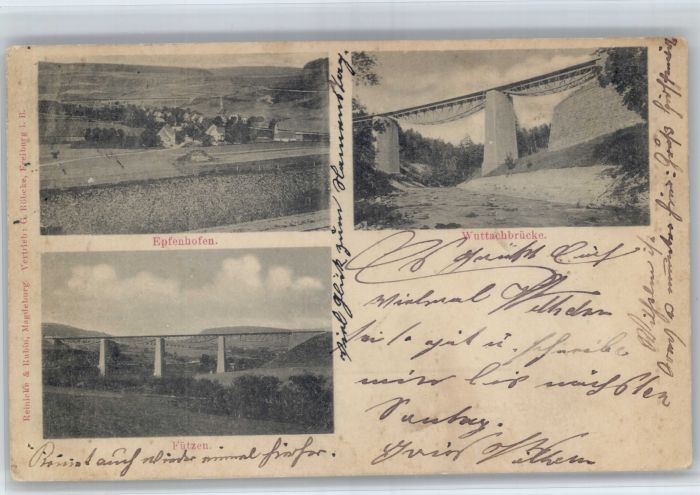 Epfenhofen.
Wuttachbrücke.
Fützen.
Reinicke & Rubin, Magdeburg Vertrieb: C. Röbcke, Freiburg i. B.
Es grüßt Euch
vielmal Wilhelm
seit gut u. schreibe
mir bis nächsten
Sontag.
Wilhelm
Viel Glück zum Namenstag.
Kommt auch wieder einmal hierher.
Wilhelm